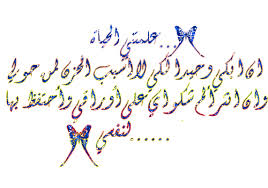 ...علمتني الحياة
ان ابكي وحيدا لكي لا اسبب الحزن لمن حولي
وان اشرح لهم شكواي على أوراقي وأحتفظ بها
لنفسي ......